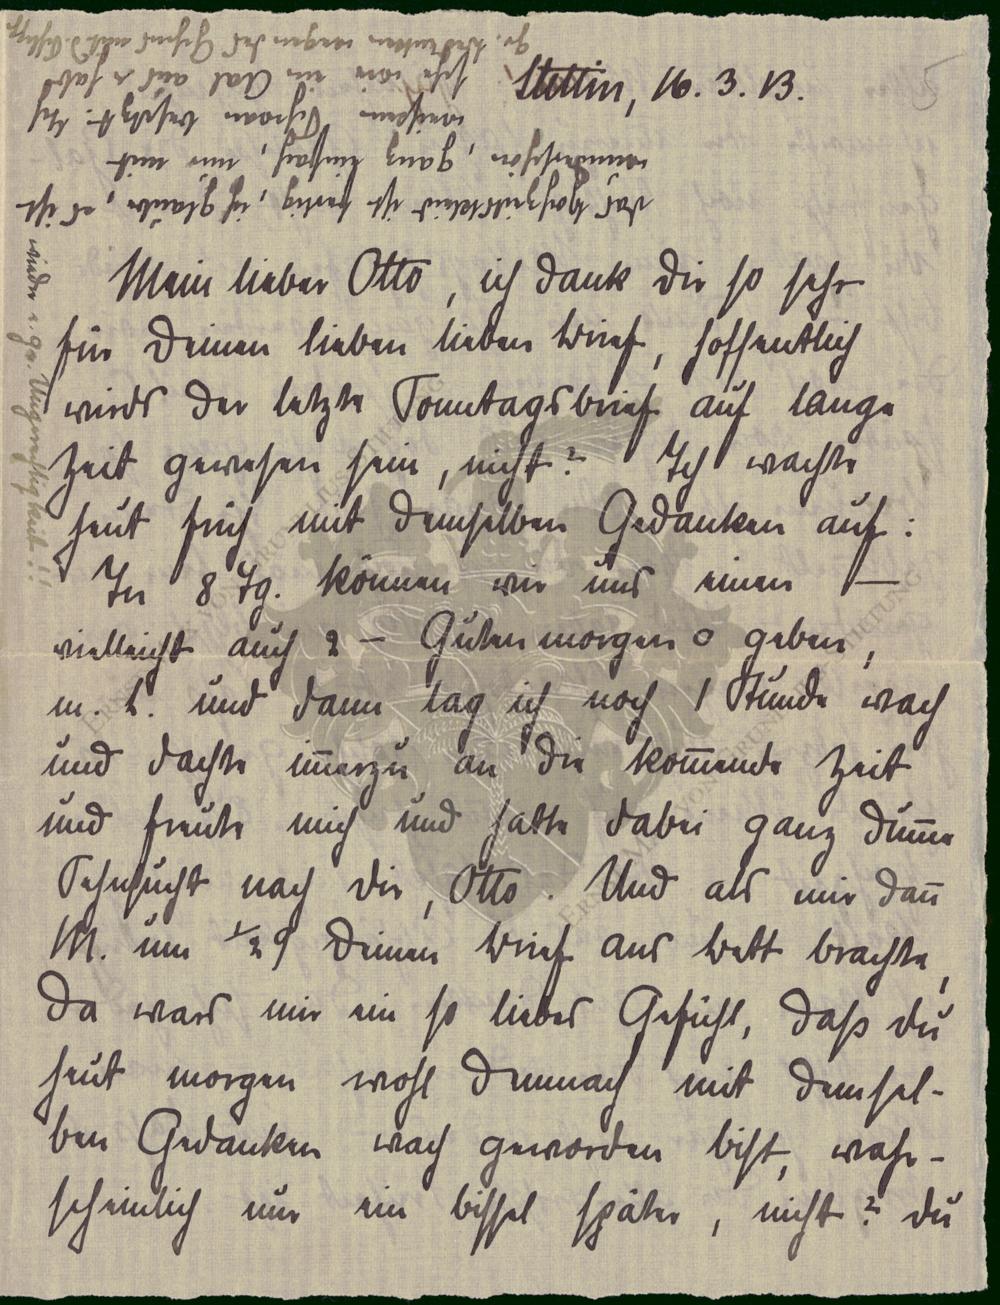 Stettin, 16. 3. 13.
Mein lieber Otto, ich dank Dir so sehr
für Deinen lieben lieben Brief, hoffentlich
wirds der letzte Sonntagsbrief auf lange
Zeit gewesen sein, nicht? Ich wachte
heut früh mit demselben Gedanken auf:
In 8 Tg. können wir uns einen —
vielleicht auch 2 – Gutenmorgen o geben,
m. L. und dann lag ich noch 1 Stunde wach
und dachte im̅erzu an die kom̅ende Zeit
und freute mich und hatte dabei ganz dum̅e
Sehnsucht nach Dir, Otto. Und als mir dan̅
M. um ½9 Deinen Brief ans Bett brachte,
da wars mir ein so liebes Gefühl, daß du
heut morgen wohl demnach mit demsel-
ben Gedanken wach geworden bist, wahr-
scheinlich nur ein bissel später, nicht? Du
das Hochzeitskleid ist fertig, ich glaube, es ist
wunderschön, ganz einfach, nur mit
weißem besetzt. Ich
seh wie ein Aal aus & hab
gr. Bedenken wegen des
wieder i. gr. Ungewißheit!!